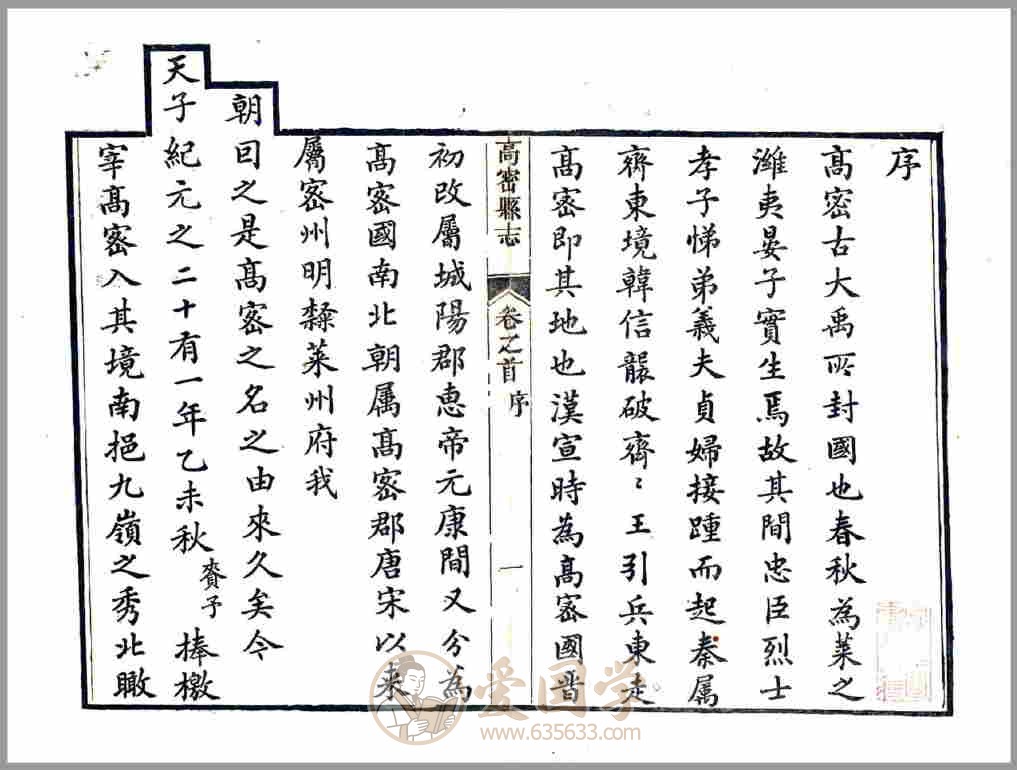 序
髙密古大禹所封國也春秋為萊之
濰夷晏子實生焉故其間忠臣烈士
孝子悌弟義夫貞婦接踵而起秦属
齊東境韓信襲破齊〻王引兵東走
髙密即其地也漢宣時為髙密國晋
高密縣志
卷之首 序
一
初改屬城陽郡惠帝元康間又分為
髙密國南北朝属髙密郡唐宋以来
屬密州明隸萊州府我
朝因之是髙密之名之由來久矣今
天子紀元之二十有一年乙未秋賚予捧檄
宰髙密入其境南挹九嶺之秀北瞰
爱国学
www.635633.com